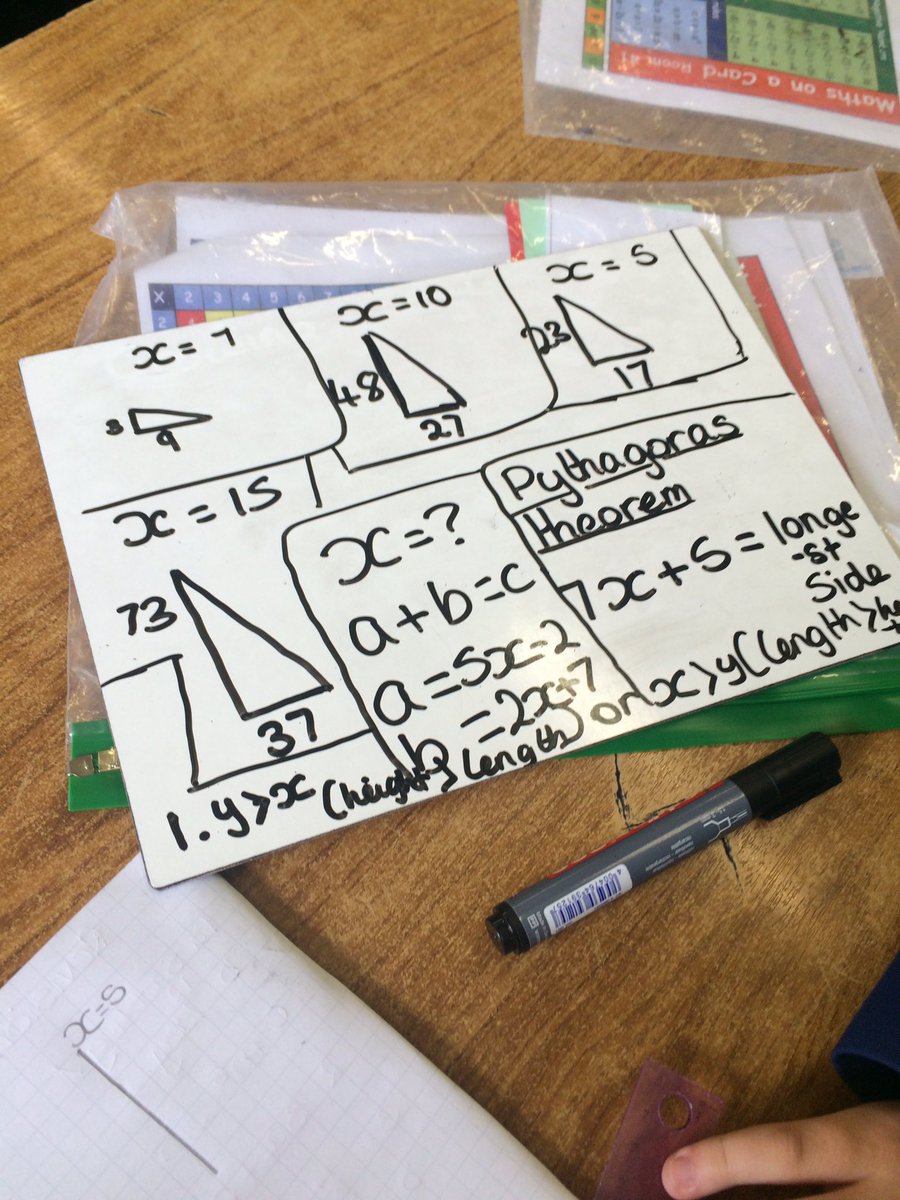 Maths on a Card Room 41
X 2 3 4 5 6 7
2 4
x = 1
3
9
x = 10
48
27
x = 5
23
17
x = 15
73
37
x = ?
a + b = c
a = 5x - 2
b = 2x + 7
Pythagoras
theorem
7x + 5 = longe
-st
Side
1. y > x (height > length) or x > y (length > he
x = 5